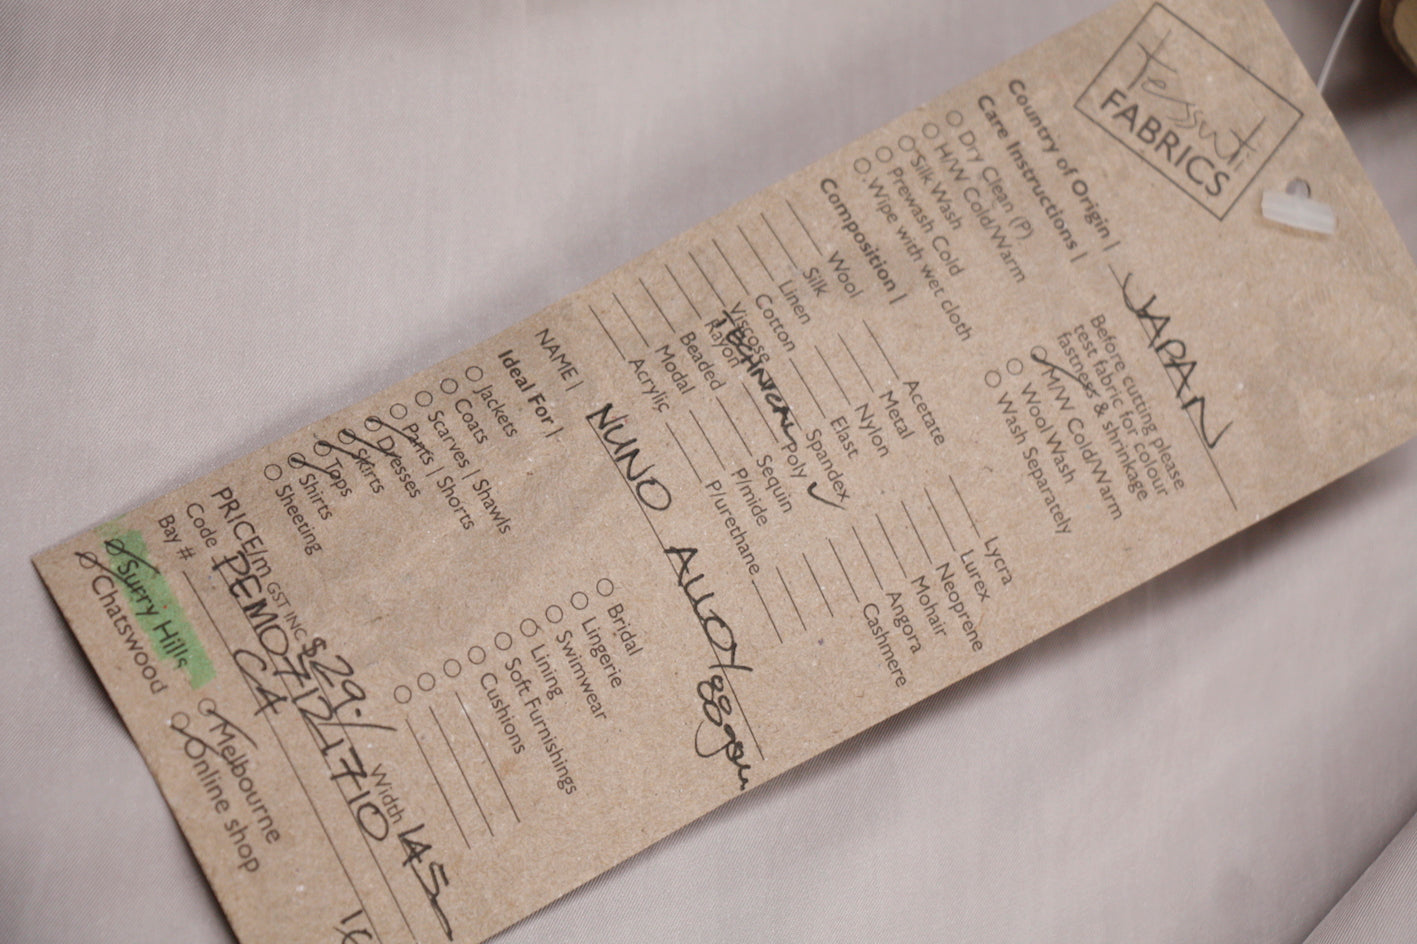 Tessuti
FABRICS
Country of Origin | JAPAN
Care Instructions |
Before cutting please
test fabric for colour
fastness & shrinkage
Dry Clean (P)
H/W Cold/Warm
Silk Wash
Prewash Cold
Wipe with wet cloth
M/W Cold/Warm
Wool Wash
Wash Separately
Composition |
Wool Acetate Lycra
Silk Metal Lurex
Linen Nylon Neoprene
Cotton Elast Mohair
Viscose Spandex Angora
Rayon TECHNICAL Poly ✓ Cashmere
Beaded Sequin
Modal P/mide
Acrylic P/urethane
NAME | NUNO ALLOY/
Ideal For |
Jackets
Coats
Scarves | Shawls
Pants | Shorts
Dresses
Skirts
Tops
Shirts
Sheeting
Bridal
Lingerie
Swimwear
Lining
Soft Furnishings
Cushions
PRICE/m GST INC $29./ Width 145
Code PEMO712/1710
Bay # CA
Surry Hills Melbourne
Chatswood Online shop